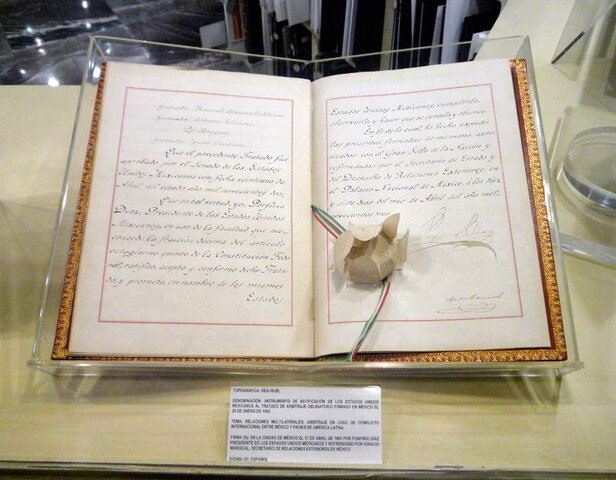 firmado Manuel Alvarez Calderon
firmado Alberto Elmore
Del Uruguay
firmado Juan Cuestas
Que el precedente Tratado fué
aprobado por el Senado de los Estados
Unidos Mexicanos con fecha
Abril del citado año mil novecientos dos.
Que en tal virtud, yo, Porfirio
Diaz, Presidente de los Estados Unidos
Mexicanos, en uso de la facultad que me
concede la fracción décima del artículo
octagésimo quinto de la Constitución Fede-
ral, ratifico, acepto y confirmo dicho Trata-
do y prometo, en nombre de los mismos
Estados
Estados Unidos Mexicanos, cumplirlo,
observarlo, y hacer que se cumpla y observe.
En fé de lo cual, he hecho expedir
las presentes, firmadas de mi mano, auto-
rizadas con el Gran Sello de la Nación y
refrendadas por el Secretario de Estado y
del Despacho de Relaciones Exteriores, en
el Palacio Nacional de México, á los diez
y siete días del mes de Abril del año mil
novecientos tres.
TOPOGRÁFICA: OEA-10-(II)
DENOMINACIÓN: INSTRUMENTO DE RATIFICACIÓN DE LOS ESTADOS UNIDOS
MEXICANOS AL TRATADO DE ARBITRAJE OBLIGATORIO FIRMADO EN MÉXICO EL
29 DE ENERO DE 1902
TEMA: RELACIONES MULTILATERALES: ARBITRAJE EN CASO DE CONFLICTO
INTERNACIONAL ENTRE MÉXICO Y PAÍSES DE AMÉRICA LATINA
FIRMA (S): EN LA CIUDAD DE MÉXICO EL 17 DE ABRIL DE 1903 POR PORFIRIO DÍAZ
PRESIDENTE DE LOS ESTADOS UNIDOS MEXICANOS Y REFRENDADO POR IGNACIO
MARISCAL, SECRETARIO DE RELACIONES EXTERIORES DE MÉXICO
IDIOMA (S): ESPAÑOL